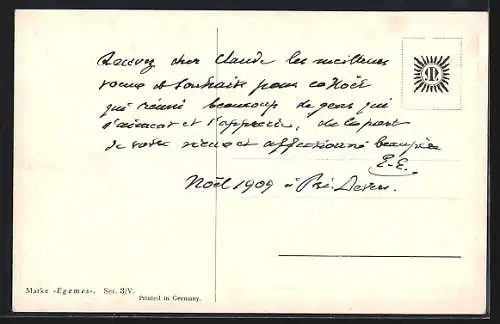 Recevez cher Claude les meilleurs
voeux et souhaits pour ce Noël
qui réuni beaucoup de gens qui
s'aiment et t'apprécie, de la part
de votre vieux et affectionné beaupère
E.E.
Noël 1909 à Pré-
Marke »Egemes«. Ser. 3/V.
Printed in Germany.